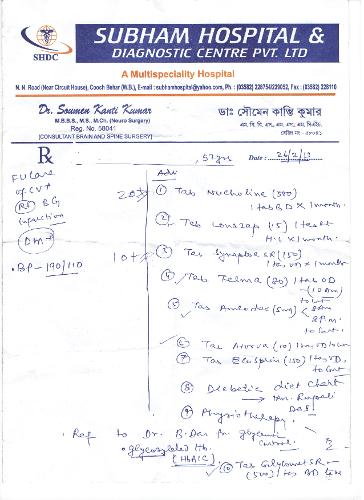 SHDC
SUBHAM HOSPITAL &
DIAGNOSTIC CENTRE PVT. LTD
A Multispeciality Hospital
N. N. Road (Near Circuit House), Cooch Behar (W.B.), E-mail : subhamhospital@yahoo.com, Ph : (03582) 228754/229052, Fax : (03582) 228110
Dr. Soumen Kanti Kumar
M.B.B.S., M.S., M.Ch. (Neuro Surgery)
Reg. No. 58041
(CONSULTANT BRAIN AND SPINE SURGERY)
ডাঃ সৌমেন কান্তি কুমার
Rx
57 yrs
Date :
Adv
F/U Case
of CVA
BG
DM+
BP - 190/110
① Tab Nucholine (500)
1 tab BD x 1 month
② Tab Lonazap (.5) 1 tab at
H.S x 1 month.
③ Tab Synaptol SR (150)
1 month
④ Tab Telma (80) 1 tab OD
(10 AM)
to Cont
⑤ Tab Amlodac (5mg)
8 PM
to Cont.
⑥ Tab Atorva (10) 1 tab OD
⑦ Tab Ecosprin (150) 1 tab OD
to Cont
⑧ Diabetic diet chart
Mrs. Rupali
Das
⑨ Physiotherapy.
Ref to Dr. B. Das for glycemic
control.
glycosylated Hb.
(HbA1C)
⑩ Tab Glycomet SR
(500) 1 tab BD